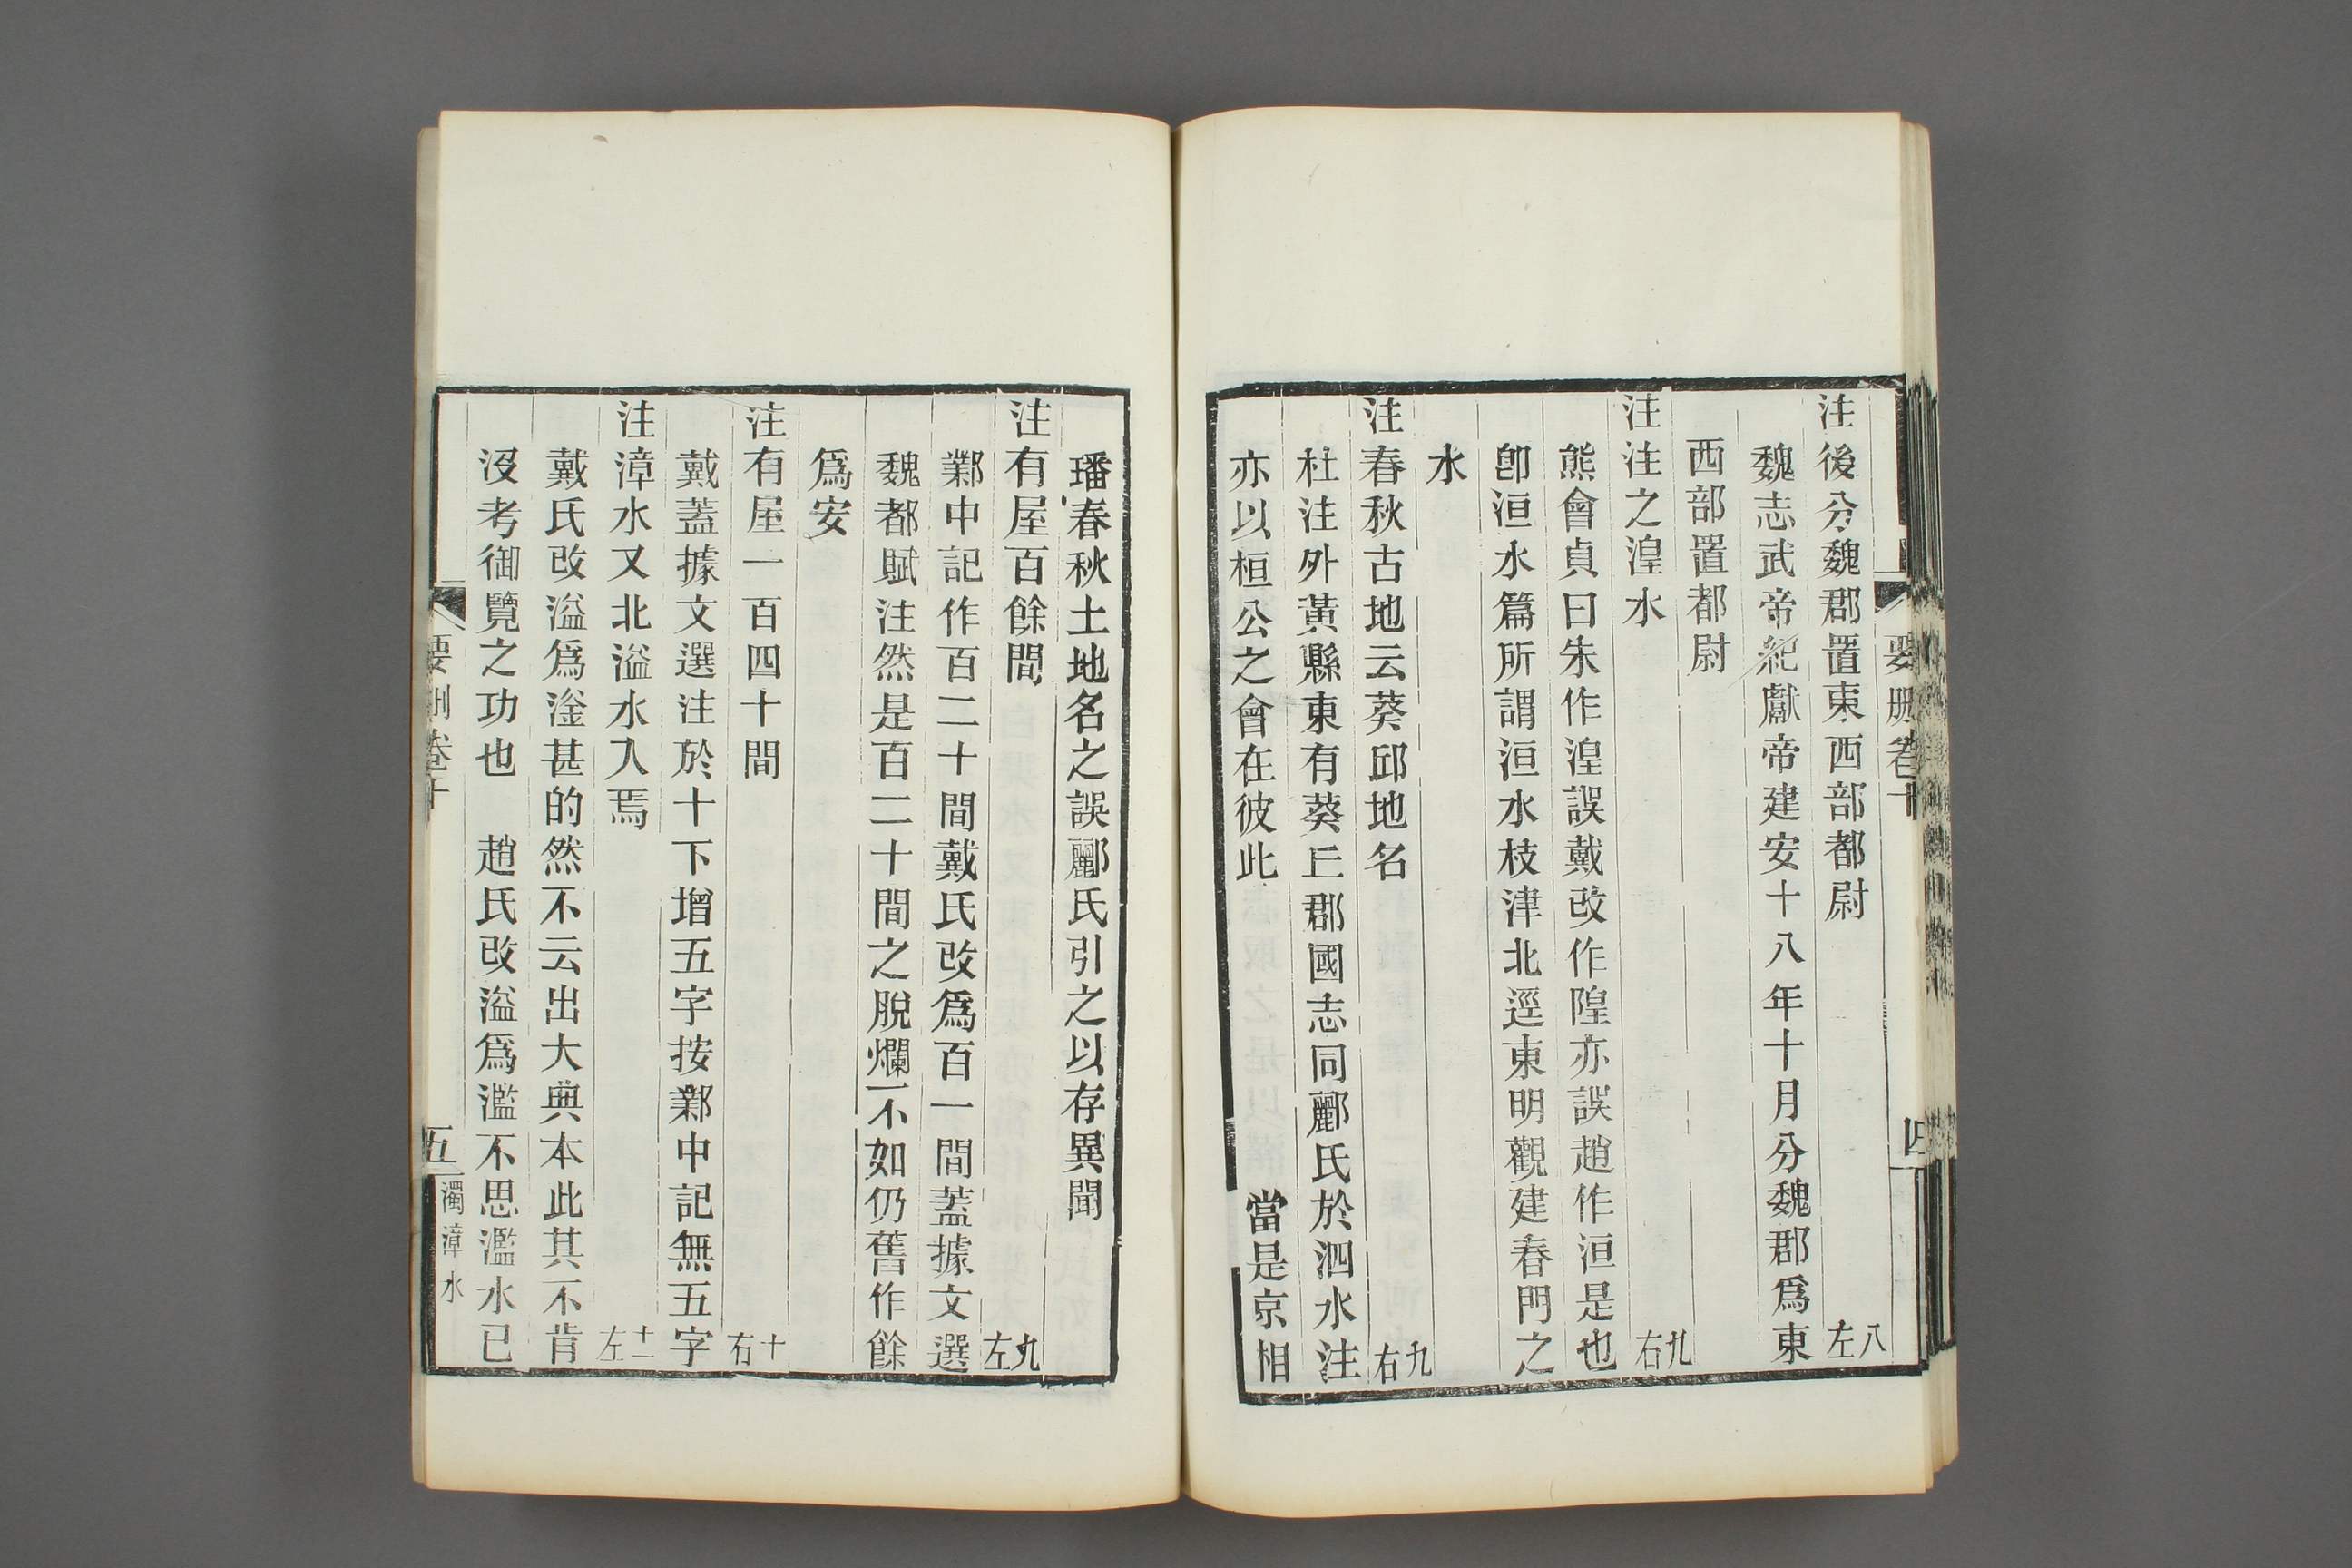 要刪卷十
四
注後分魏郡置東西部都尉
八左
魏志武帝紀獻帝建安十八年十月分魏郡爲東
西部置都尉
注注之湟水
九右
熊會貞曰朱作湟誤戴改作隍亦誤趙作洹是也
卽洹水篇所謂洹水枝津北逕東明觀建春門之
水
注春秋古地云葵邱地名
九右
杜注外黃縣東有葵丘郡國志同酈氏於泗水注
亦以桓公之會在彼此
當是京相
璠春秋土地名之誤酈氏引之以存異聞
注有屋百餘間
九左
鄴中記作百二十間戴氏改爲百一間蓋據文選
魏都賦注然是百二十間之脫爛不如仍舊作餘
爲安
注有屋一百四十間
十右
戴蓋據文選注於十下增五字按鄴中記無五字
注漳水又北滏水入焉
十一左
戴氏改溢爲滏甚的然不云出大典本此其不肯
沒考御覽之功也　趙氏改溢爲濫不思濫水已
要刪卷十
五
濁漳水